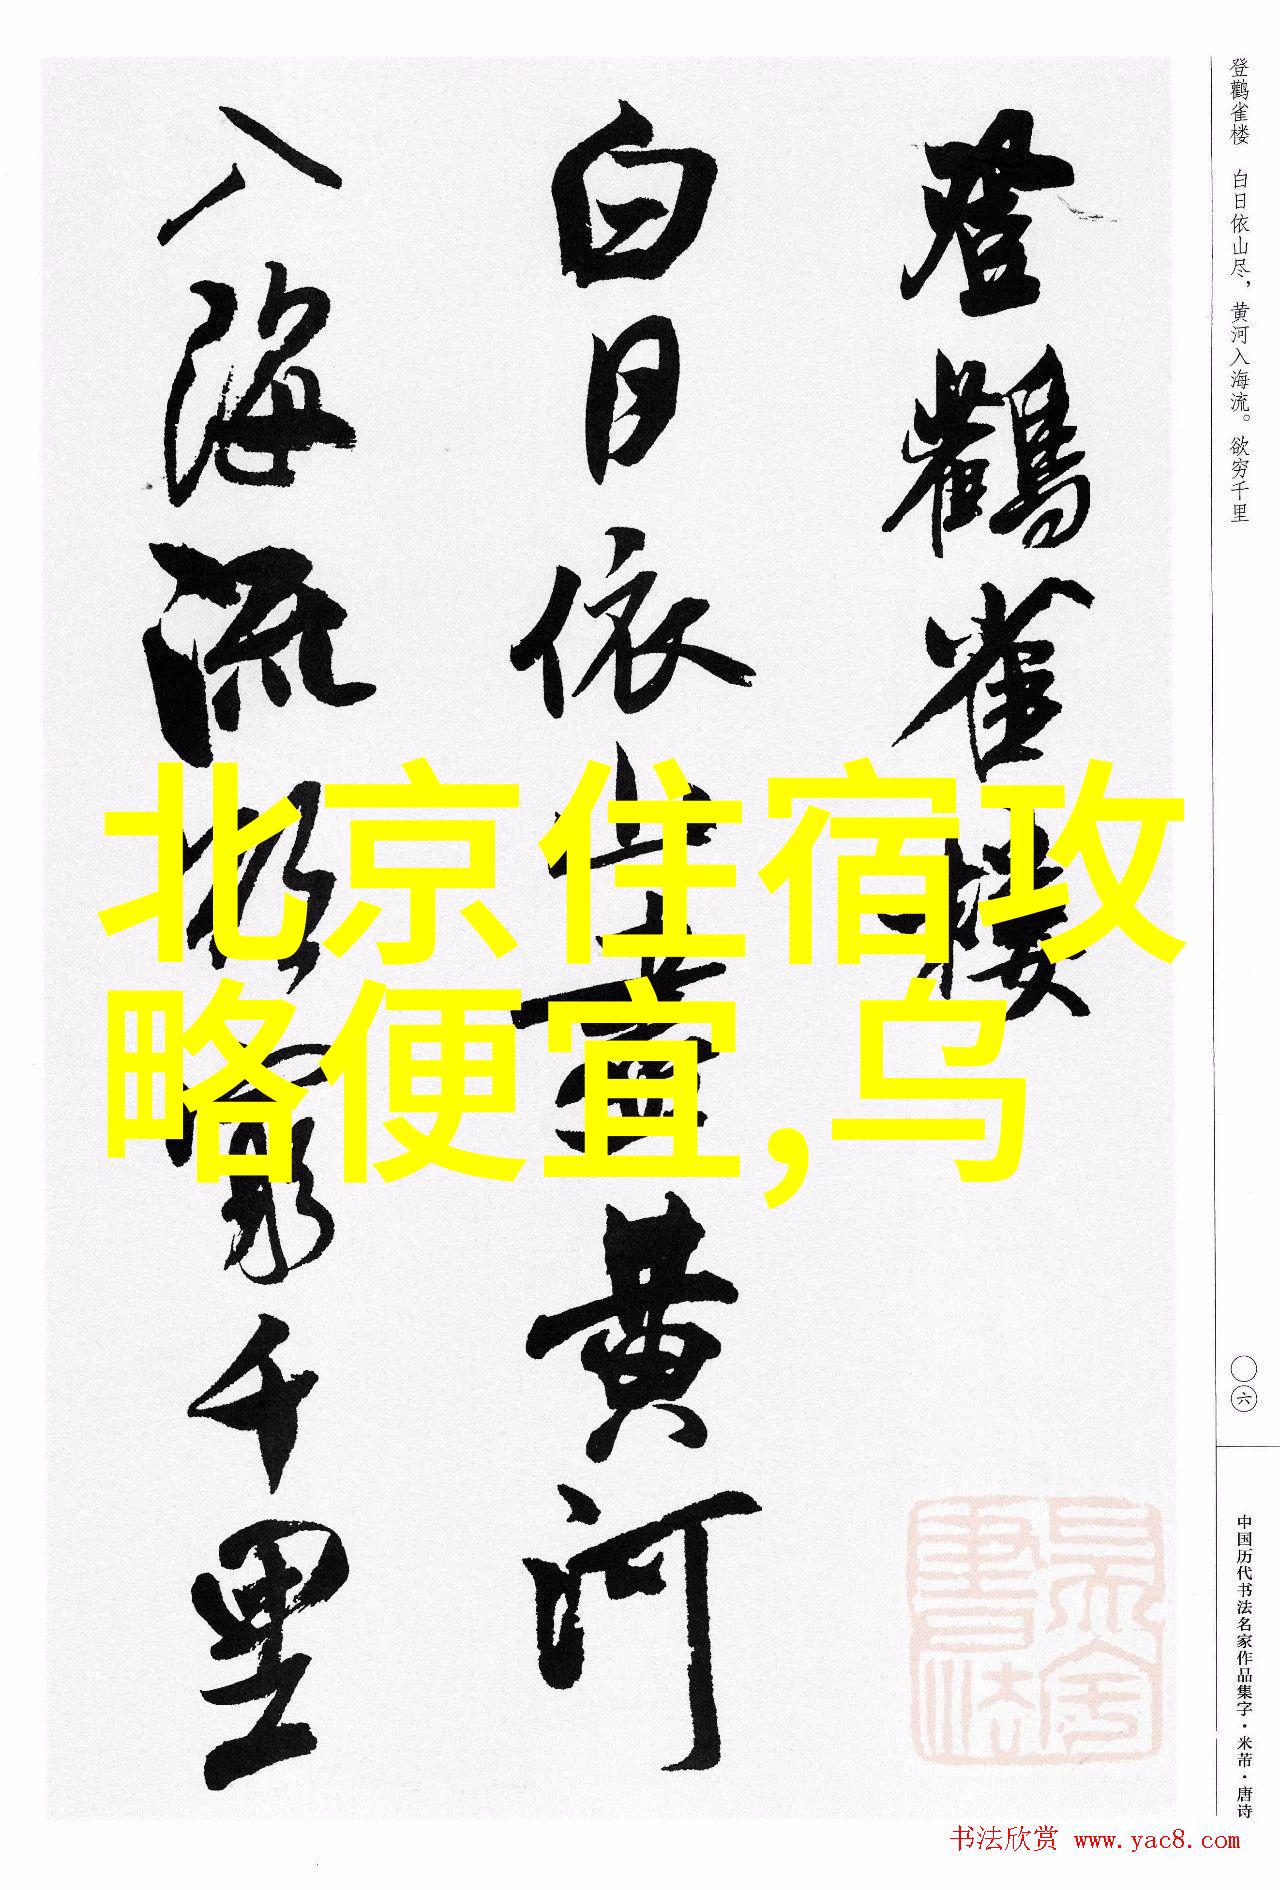 登鸛雀楼
白日依山尽黄河
入海流欲穷千里
北京住宿攻
略便宜,乌
登鹳雀楼 白日依山尽，黄河入海流。欲穷千里
〇六
中国历代书法名家作品集字·米芾·唐诗
书法欣赏 www.yac8.com